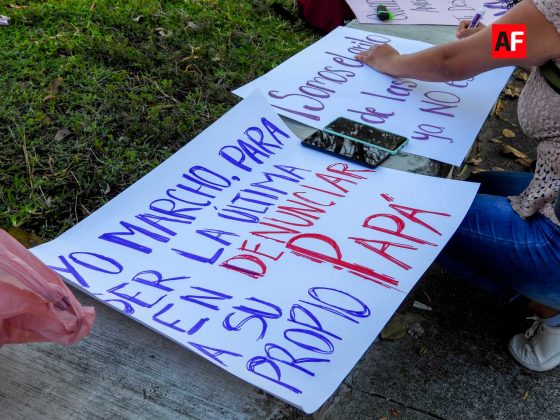 AF
¡Somos el grito
de las
ya NO e
YO MARCHO, PARA
SER LA ÚLTIMA
EN DENUNCIAR
A SU PAPÁ
PROPIO